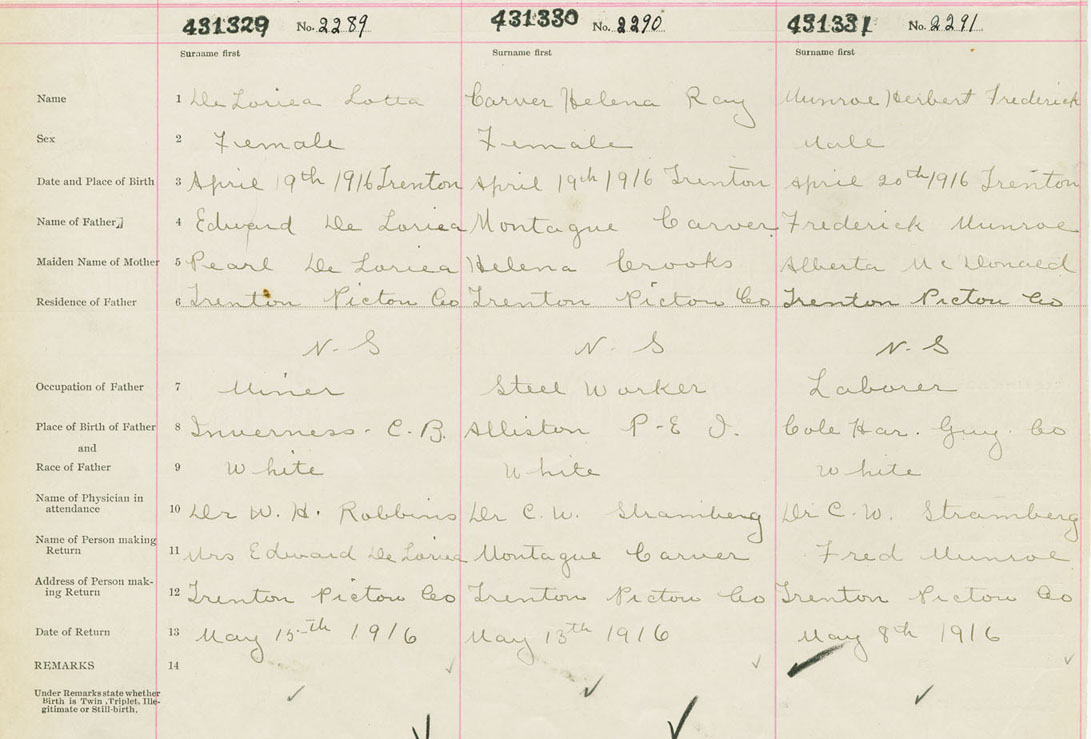 431329 No. 2289 431330 No. 2290 431331 No. 2291
Surname first Surname first Surname first
Name 1 De Loriea Lotta Carver Helena Ray Munroe Herbert Frederick
Sex 2 Female Female Male
Date and Place of Birth 3 April 19th 1916 Trenton April 19th 1916 Trenton April 20th 1916 Trenton
Name of Father 4 Edward De Loriea Montague Carver Frederick Munroe
Maiden Name of Mother 5 Pearl De Loriea Helena Crooks Alberta Mc Donald
Residence of Father 6 Trenton Pictou Co Trenton Pictou Co Trenton Pictou Co
N. S N. S N. S
Occupation of Father 7 Miner Steel Worker Laborer
Place of Birth of Father 8 Inverness - C. B. Alliston P-E I. Cole Har. Guy. Co
and
Race of Father 9 White White White
Name of Physician in
attendance 10 Dr W. H. Robbins Dr C. W. Stramberg Dr C. W. Stramberg
Name of Person making
Return 11 Mrs Edward De Loriea Montague Carver Fred Munroe
Address of Person mak-
ing Return 12 Trenton Pictou Co Trenton Pictou Co Trenton Pictou Co
Date of Return 13 May 15th 1916 May 13th 1916 May 8th 1916
REMARKS 14
Under Remarks state whether
Birth is Twin, Triplet, Ille-
gitimate or Still-birth.